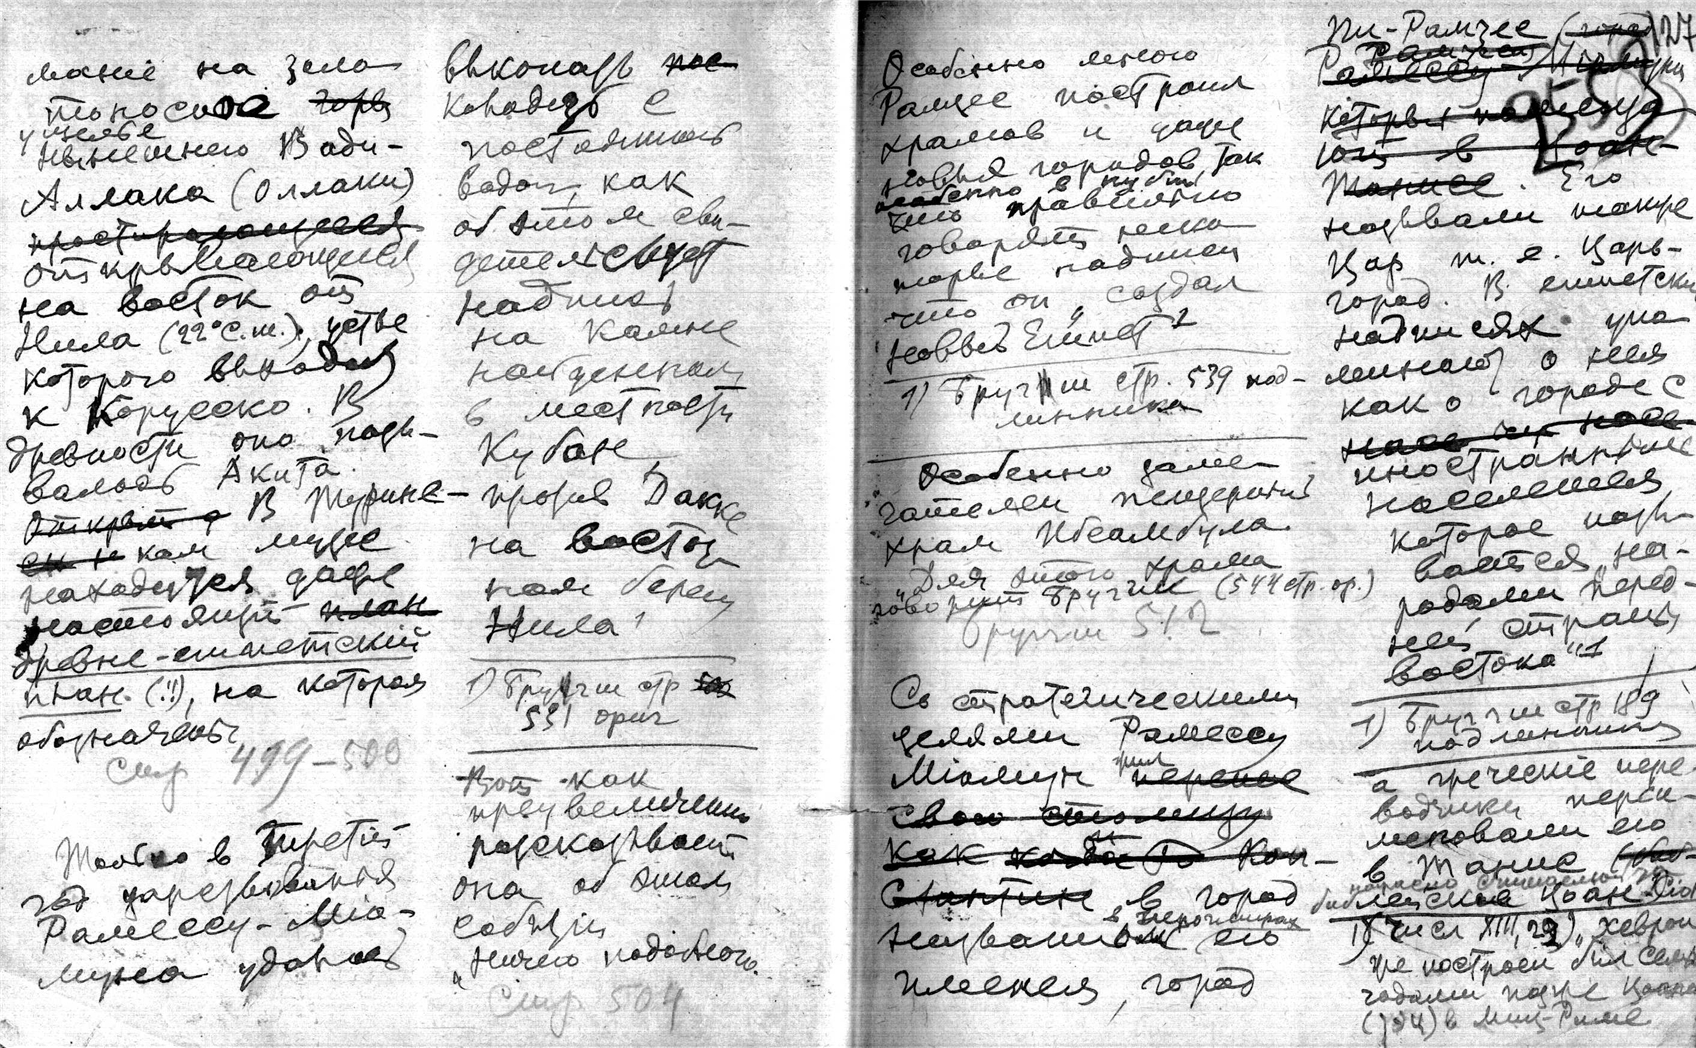 мание на золо
тоносное
ущелье
нынешнего Вади-
Аллака (Оллаки)
простирающееся
открывающееся
на восток от
Нила (22° с.ш.), устье
которого выходит
к Коруско. В
древности оно назы-
валось Акита.
В Турине-
ком музее
находится даже
настоящий план
древне-египетский
план (!!), на котором
обозначены
стр 499-500
Только в третий
год царствования
Рамессу-Міа-
муна удалось
выкопать
колодезь с
постоянною
водою, как
об этом сви-
детельствует
надпись
на камне
найденном
в местности
Кубан
против Дакке
на восточ
ном берегу
Нила 1
1) Бругш стр
531 ориг
Вот как
преувеличенно
рассказывает
она об этом
событіи
„Ничего подобного
стр 504
Особенно много
Рамзес построил
храмов и даже
новых городов так
что правильно
говорят неко
торые надписи
что он „создал
новый Египет" 1
1) Бругш стр. 539 под-
линника
Особенно заме-
чателен пещерный
храм Ибсамбула
„Для этого храма
говорит Бругш (544 стр. ор.)
Бругш 512
Со стратегическими
целями Рамессу
Міамун
свою столицу
как Кон-
стантин в город
названный в иероглифах его
именем, город
127
Пи-Рамзес (город
Рамессу
Его
называли также
Цар т. е. Царь-
город. В египетских
надписях упо
минают о нем
как о городе с
иностранным
населением
которое назы-
вается „на-
родами перед-
ней страны
востока" 1
1) Бругш стр 189
подлинника
а греческіе пере-
водчики переи-
меновали его
в Танис
1) Числ XIII, 23) „Хеврон
же построен был семью
годами прежде Цоана